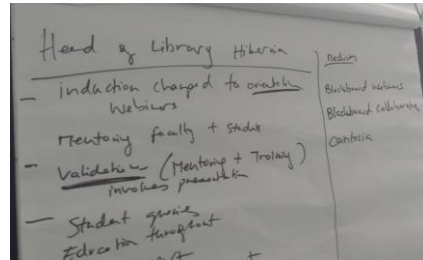 Head of Library Hibernia
- induction changed to orientation
webinars
Mentoring faculty + student
- Validation (Mentoring + Training)
involves presentation
- Student queries
Education throughout
Medium
Blackboard webinars
Blackboard Collaborate
Camtasia